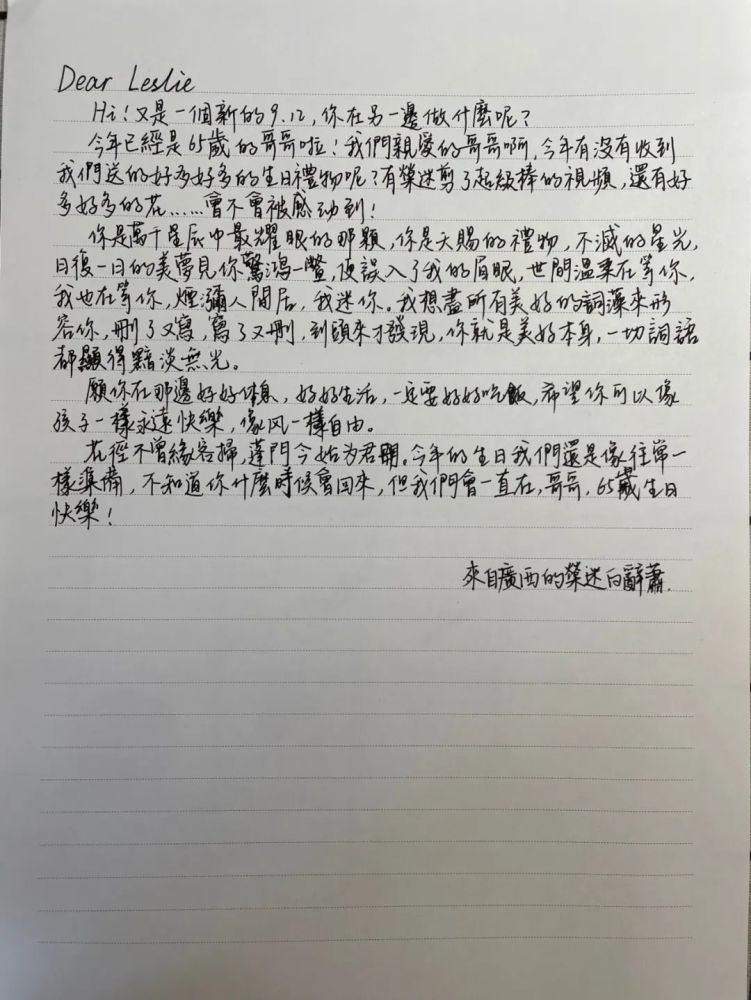 Dear Leslie
Hi！又是一個新的9.12，你在另一邊做什麼呢？
今年已經是65歲的哥哥啦！我們親愛的哥哥啊，今年有沒有收到
我們送的好多好多的生日禮物呢？有榮迷剪了超級棒的視頻，還有好
多好多的花……會不會被感动到！
你是萬千星辰中最耀眼的那顆，你是天賜的禮物，不滅的星光，
日復一日的美夢見你驚鴻一瞥，便誤入了我的眉眼，世間溫柔在等你，
我也在等你，煙瀰人間居，我迷你。我想盡所有美好的詞藻來形
容你，刪了又寫，寫了又刪，到頭來才發現，你就是美好本身，一切詞語
都顯得黯淡無光。
願你在那邊好好休息，好好生活，一定要好好吃飯，希望你可以像
孩子一樣永遠快樂，像风一樣自由。
花徑不曾緣客掃，蓬門今始为君開。今年的生日我們還是像往常一
樣準備，不知道你什麼時候會回來，但我們會一直在，哥哥，65歲生日
快樂！
來自廣西的榮迷白辭蕭.